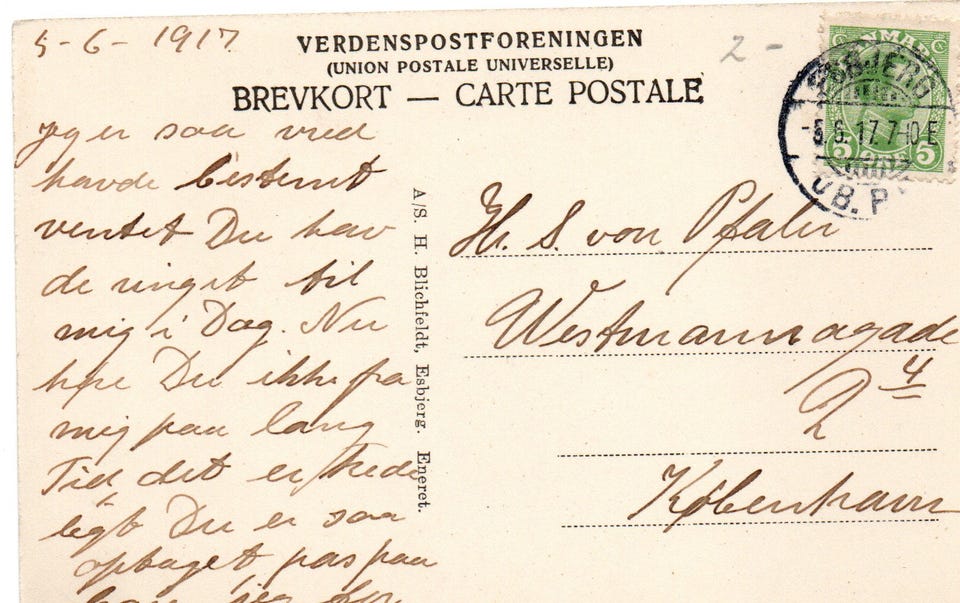 5-6-1917
VERDENSPOSTFORENINGEN
(UNION POSTALE UNIVERSELLE)
BREVKORT — CARTE POSTALE
2-
DANMARK
5 5
ESBJERG
-5.6.17.7-10E
JB.P.
Jeg er saa vred
havde bestemt
ventet Du hav
de ringet til
mig i Dag. Nu
hører Du ikke fra
mig paa lang
Tid det er kede
ligt Du er saa
optaget pas paa
A/S. H. Blichfeldt, Esbjerg. Eneret.
Hr. S. von Pfaler
Westmannagade
2 4
København